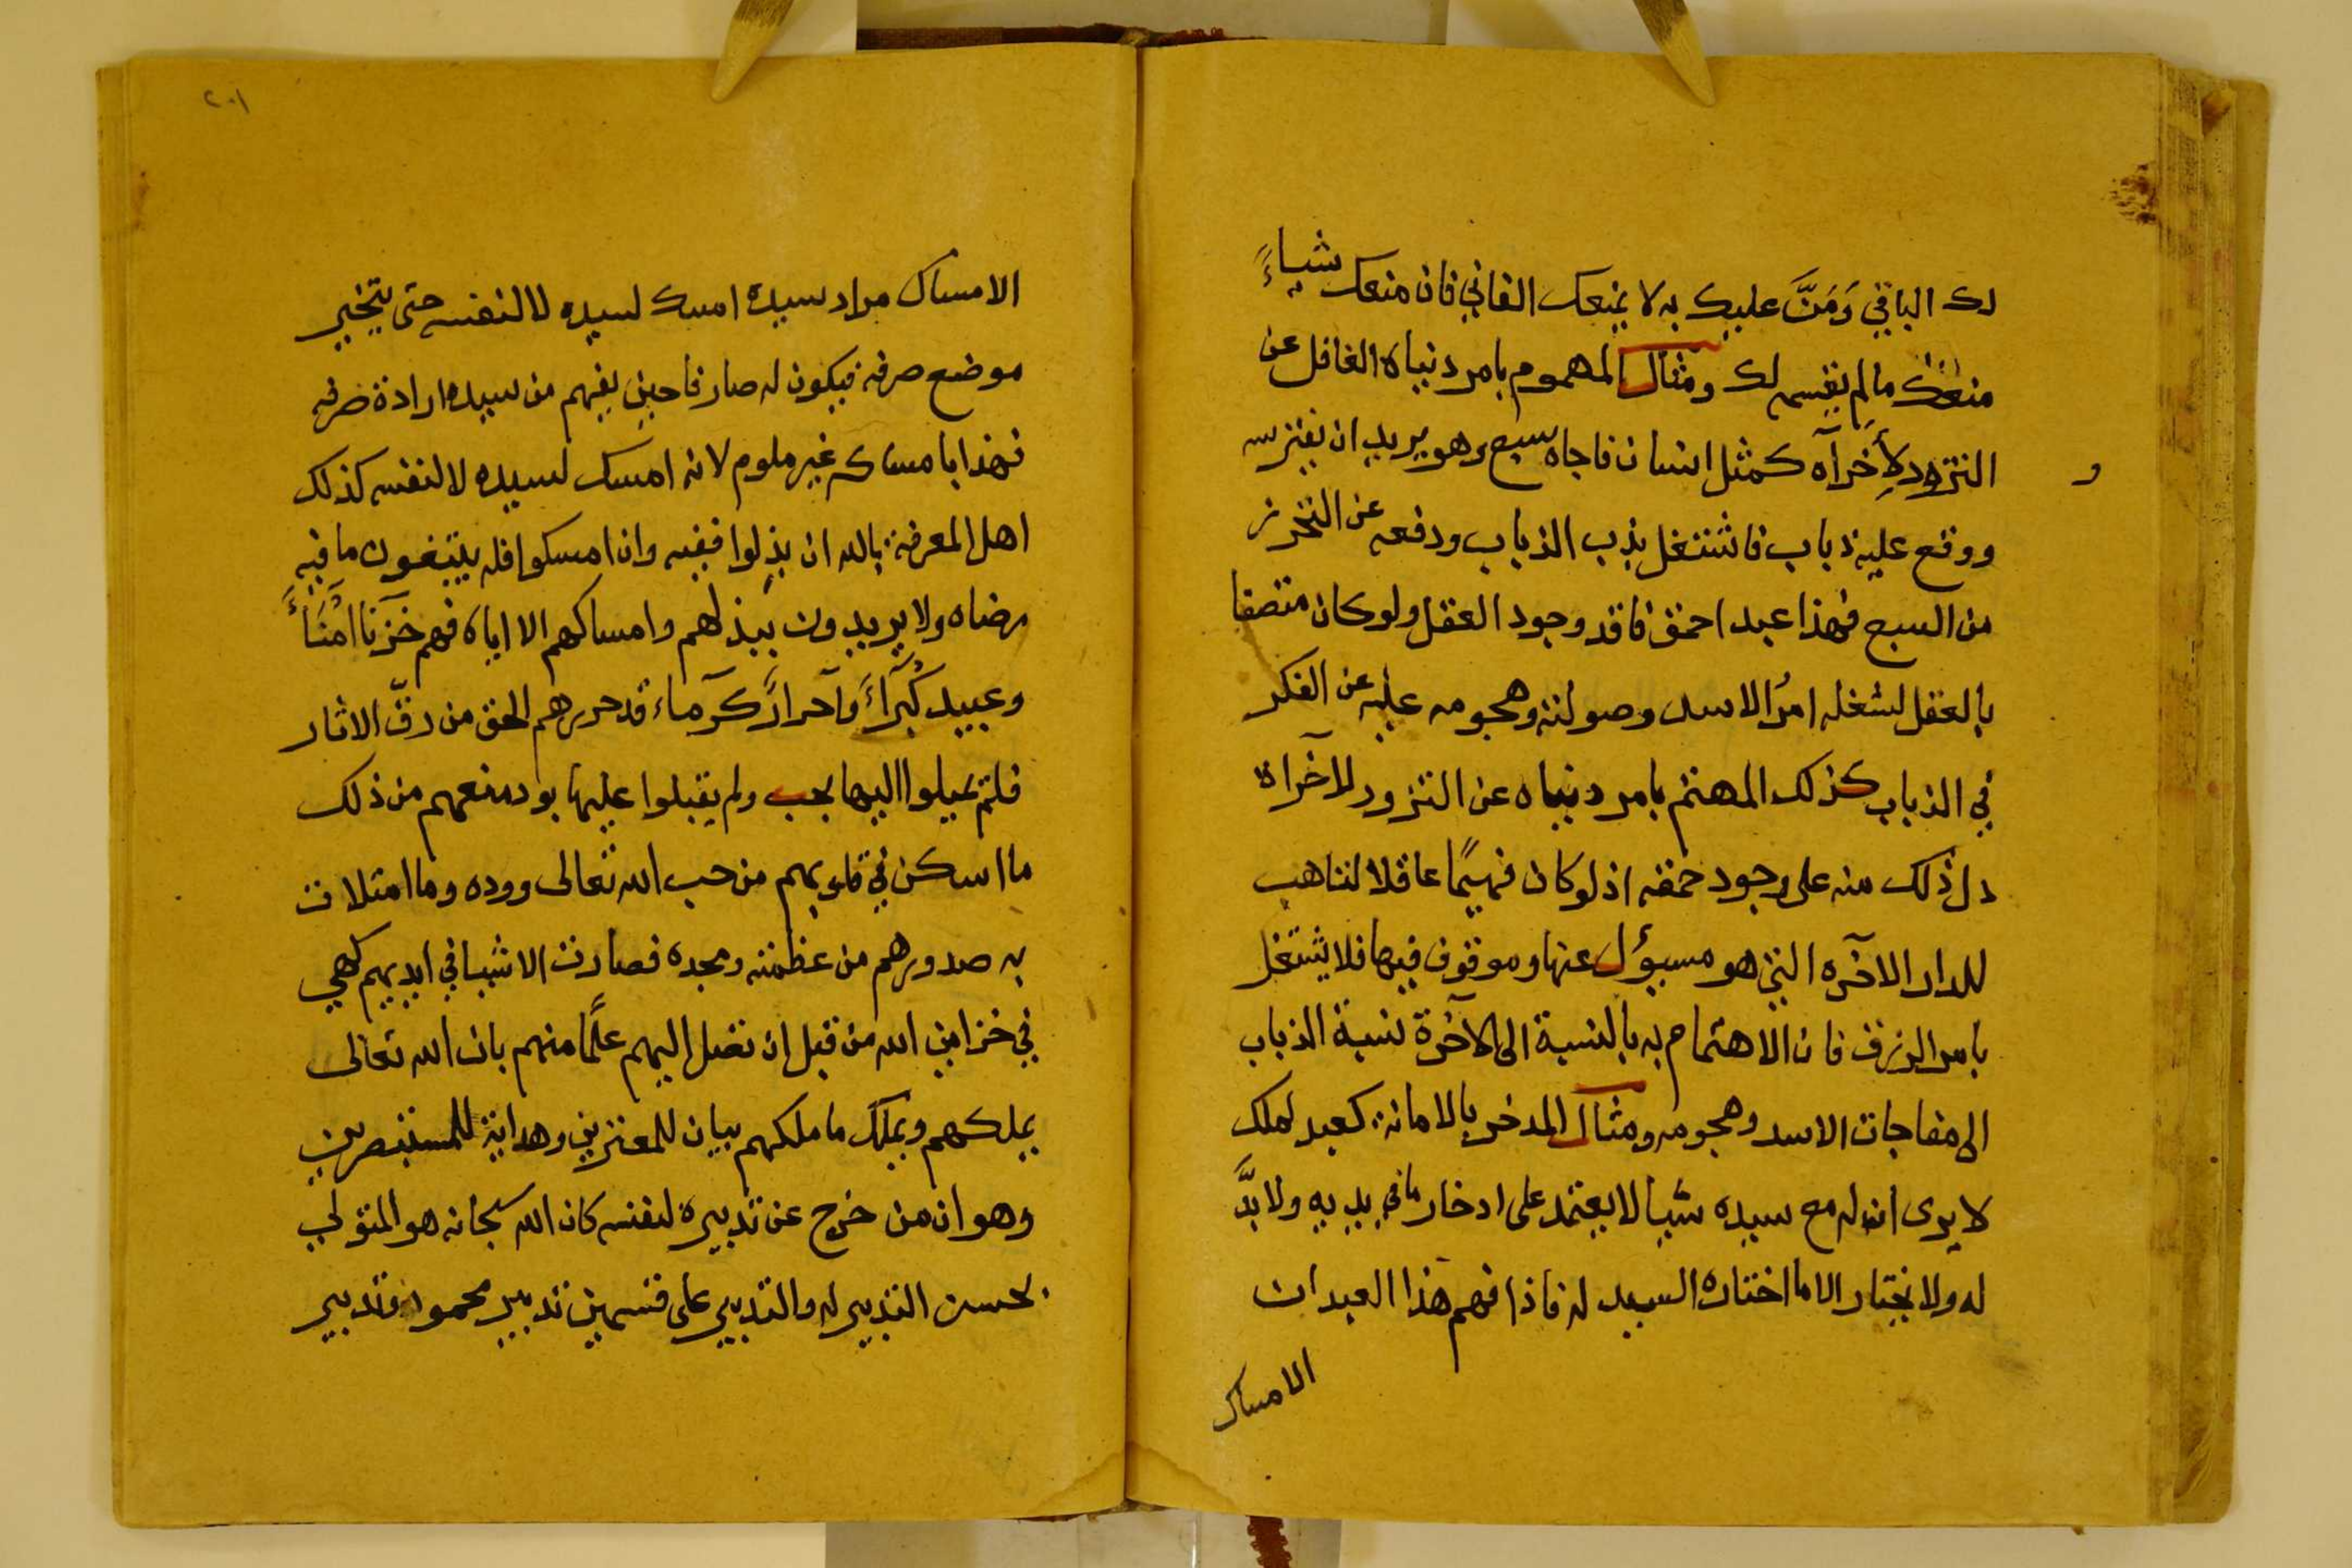 لك الباقي وَمَنَّ عليك به لا يمنعك الفاني فان منعك شياءً
منعك مالم يقسمه لك ومثال المهموم بامر دنياه الغافل عن
التزود لأخرآه كمثل انسان فاجاه سبع وهو يريد ان يفترسه
و
ووقع عليه ذباب فاشتغل بذب الذباب ودفعه عن التحرز
من السبع فهذا عبد احمق فاقد وجود العقل ولو كان متصفا
بالعقل لشغله امرُ الاسد وصولته وهجومه عليه عن الفكر
في الذباب كذلك المهتم بامر دنياه عن التزود للآخراه
دل ذلك منه على وجود حمقه اذ لو كان فهيمًا عاقلا لتاهب
للدار الآخره التي هو مسيؤل عنها وموقوف فيها فلا يشتغل
بامر الرزق فان الاهتمام به بالنسبة الى الآخرة نسبة الذباب
الى مفاجات الاسد وهجومه ومثال المدخر بالامانة كعبد لملك
لا يرى ان له مع سيده شيا لا يعتمد على ادخار ما في يديه ولا بدَّ
له ولا يختار الا ما اختاره السيد له فاذا فهم هذا العبد ان
الامساك
٢٠١
الامساك مراد سيده امسك لسيده لا لنفسه حتى يتخير
موضع صرفه فيكون له صارفا حين يفهم من سيده ارادة صرفه
فهذا بامساكه غير ملوم لانه امسك لسيده لا لنفسه كذلك
اهل المعرفة بالله ان بذلوا ففيه وان امسكوا فله يبتغون ما فيه
رضاه ولا يريدون ببذلهم وامساكهم الا اياه فهم خزنا امُنَاءً
وعبيد كُبَرَآءَ وَآحرارً كرَماء قد حررهم الحق من رقّ الاثار
فلم يميلوا اليها بحب ولم يقبلوا عليها بود منعهم من ذلك
ما اسكن في قلوبهم من حب الله تعالى ووده وما امتلات
به صدورهم من عظمته ومجده فصارت الاشيا في ايديهم كهي
في خزاين الله من قبل ان تصل اليهم علمًا منهم بان الله تعالى
يملكهم ويملك ما ملكهم بيان للمعتزين وهداية للمستبصرين
وهو ان من خرج عن تدبيره لنفسه كان الله سبحانه هو المتولي
لحسن التدبير له والتدبير على قسمين تدبير محمود وتدبير